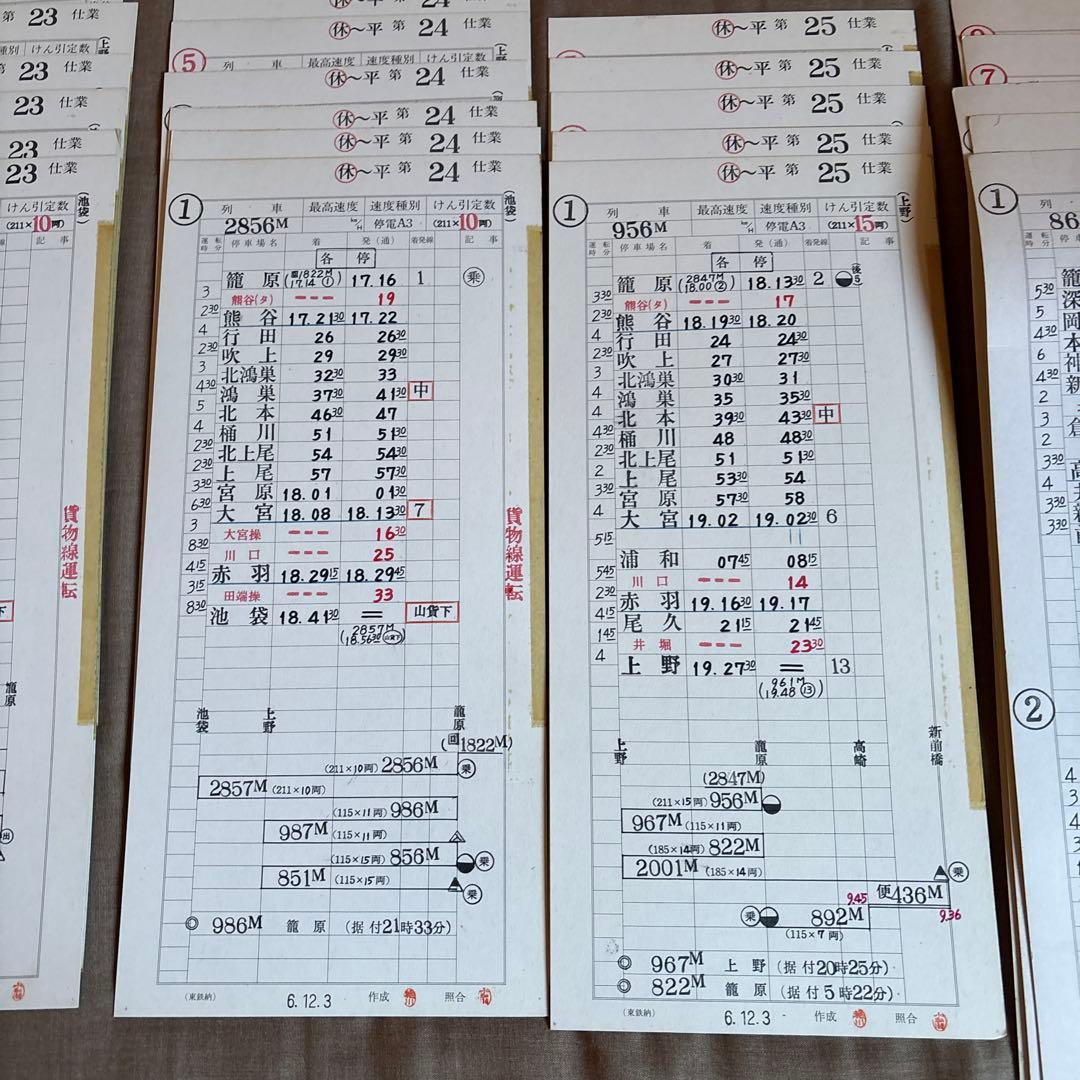 第 23 仕業
けん引定数
23 仕業
23 仕業
23 仕業
23 仕業
(池袋)
けん引定数
(211×10両)
記 事
貨物線運転
籠原
休～平 第 24 仕業
休～平 第 24 仕業
⑤ 列 車 最高速度 速度種別 けん引定数
休～平 第 24 仕業
休～平 第 24 仕業
休～平 第 24 仕業
休～平 第 24 仕業
① 列 車 最高速度 速度種別 けん引定数 (池袋)
2856M km/H 停電A3 (211×10両)
運転時分 停車場名 着 発(通) 着発線 記 事
各 停
籠原 (回1822M 17.14 ①) 17.16 1 乗
3 熊谷(タ) --- 19
2 30 熊谷 17.21 30 17.22
4 行田 26 26 30
2 30 吹上 29 29 30
3 北鴻巣 32 30 33
4 30 鴻巣 37 30 41 30 中
5 北本 46 30 47
4 桶川 51 51 30
2 30 北上尾 54 54 30
2 30 上尾 57 57 30
3 宮原 18.01 01 30
6 30 大宮 18.08 18.13 30 7
3 大宮操 --- 16 30
8 30 川口 --- 25
4 15 赤羽 18.29 15 18.29 45
3 15 田端操 --- 33
8 30 池袋 18.41 30 = 山貨下
(2857M 18.56 30 山貨下)
貨物線運転
池袋 上野 籠原
(回1822M)
(211×10両) 2856M 乗
2857M (211×10両)
(115×11両) 986M
987M (115×11両)
(115×15両) 856M 乗
851M (115×15両) 乗
◎ 986M 籠原 (据付21時33分)
(東鉄納) 6.12.3 作成 照合
休～平 第 25 仕業
休～平 第 25 仕業
休～平 第 25 仕業
休～平 第 25 仕業
休～平 第 25 仕業
① 列 車 最高速度 速度種別 けん引定数 (上野)
956M km/H 停電A3 (211×15両)
運転時分 停車場名 着 発(通) 着発線 記 事
各 停
籠原 (2847M 18.00 ②) 18.13 30 2 (後5)
3 30 熊谷(タ) --- 17
2 30 熊谷 18.19 30 18.20
4 行田 24 24 30
2 30 吹上 27 27 30
3 北鴻巣 30 30 31
4 鴻巣 35 35 30
4 北本 39 30 43 30 中
4 30 桶川 48 48 30
2 30 北上尾 51 51 30
2 上尾 53 30 54
3 30 宮原 57 30 58
4 大宮 19.02 19.02 30 6
5 15 浦和 07 45 08 15
5 45 川口 --- 14
2 30 赤羽 19.16 30 19.17
4 15 尾久 21 15 21 45
1 45 井堀 --- 23 30
4 上野 19.27 30 = 13
(961M 19.48 ⑬)
上野 籠原 高崎 新前橋
(2847M)
(211×15両) 956M
967M (115×11両)
(185×14両) 822M
2001M (185×14両) 乗
9.45 便436M
乗 892M 9.36
(115×7両)
◎ 967M 上野 (据付20時25分)
◎ 822M 籠原 (据付5時22分)
(東鉄納) 6.12.3 作成 照合
⑦
①
列
86
運転時分
5 30 籠
5 深
4 30 岡
6 本
4 30 神
2 新
②